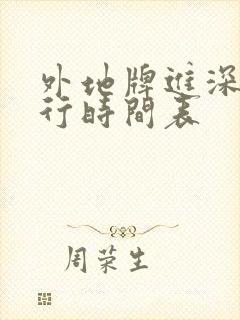 外地牌進深
行時間表
周荣生